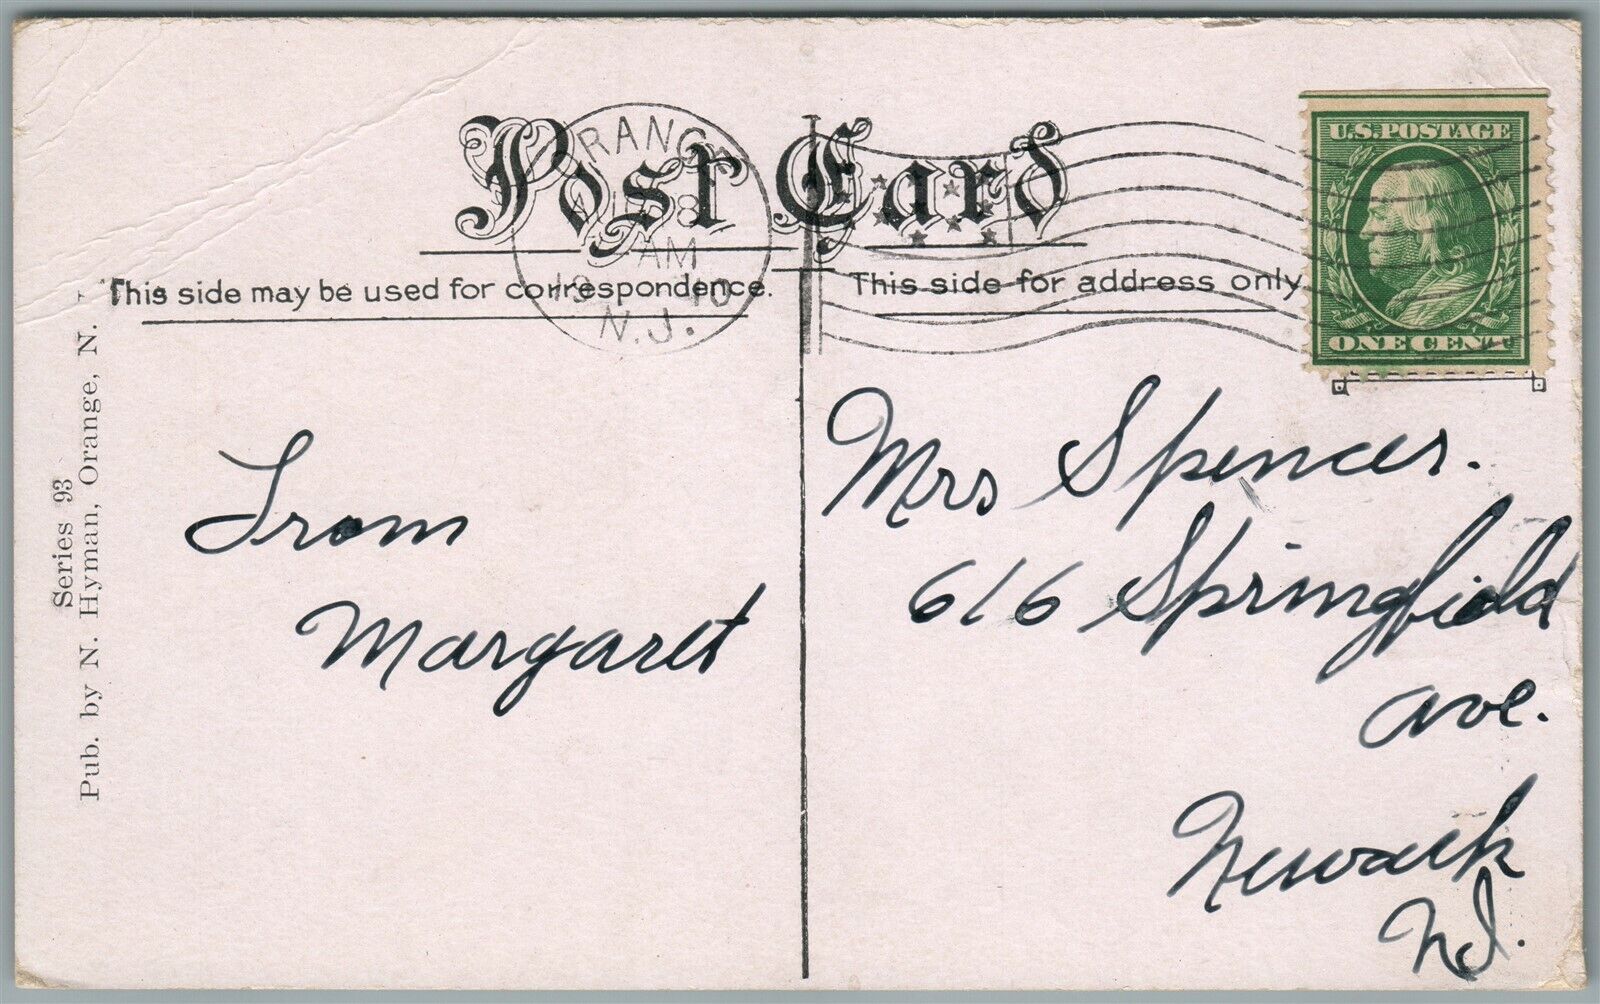 Post Card
ORANGE
AUG 8
AM
1910
N.J.
U.S. POSTAGE
ONE CENT
This side may be used for correspondence.
This side for address only
Series 93
Pub. by N. Hyman, Orange, N.
From
Margaret
Mrs Spencer.
616 Springfield
ave.
Newark
N.J.